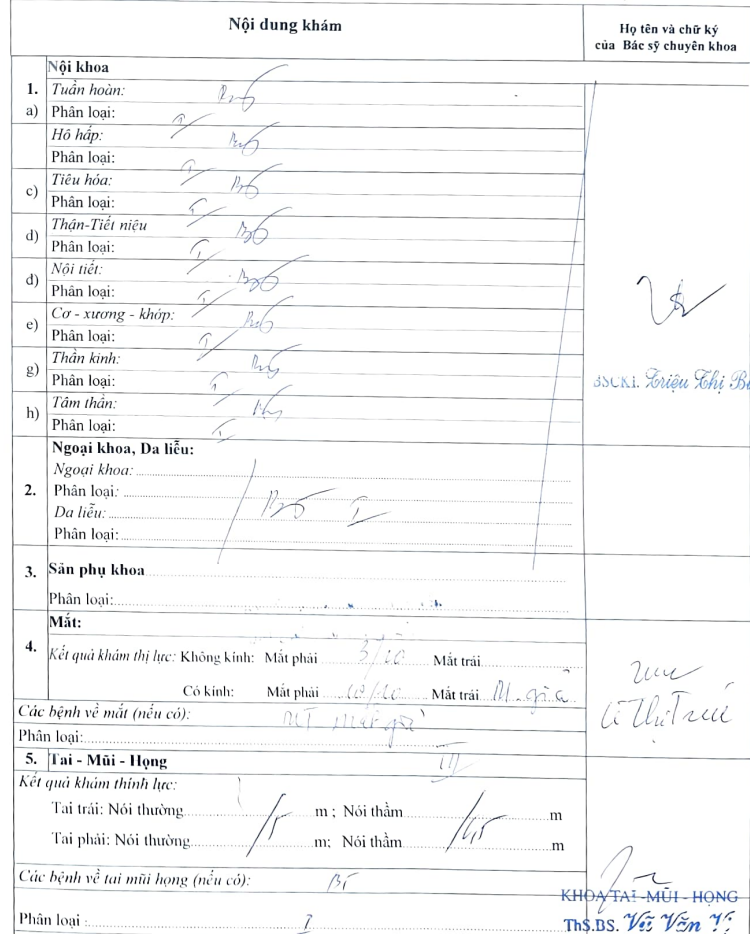 Nội dung khám
Họ tên và chữ ký
của Bác sỹ chuyên khoa
Nội khoa
1. Tuần hoàn:
a) Phân loại: I
Hô hấp:
Phân loại: I
Tiêu hóa:
c) Phân loại: I
Thận-Tiết niệu
d) Phân loại: I
Nội tiết:
d) Phân loại: I
Cơ - xương - khớp:
e) Phân loại: I
Thần kinh:
g) Phân loại: I
Tâm thần:
h) Phân loại: I
BSCKI. Triệu Thị
Ngoại khoa, Da liễu:
Ngoại khoa:
2. Phân loại: I
Da liễu:
Phân loại:
3. Sản phụ khoa
Phân loại:
Mắt:
4. Kết quả khám thị lực: Không kính: Mắt phải 3/10 Mắt trái
Có kính: Mắt phải 10/10 Mắt trái M. giả
Các bệnh về mắt (nếu có): MT mắt giả
Phân loại: III
5. Tai - Mũi - Họng
Kết quả khám thính lực:
Tai trái: Nói thường 5 m ; Nói thầm 0,5 m
Tai phải: Nói thường m; Nói thầm m
Các bệnh về tai mũi họng (nếu có): BT
Phân loại : I
KHOA TAI -MŨI - HỌNG
ThS.BS. Vũ Văn